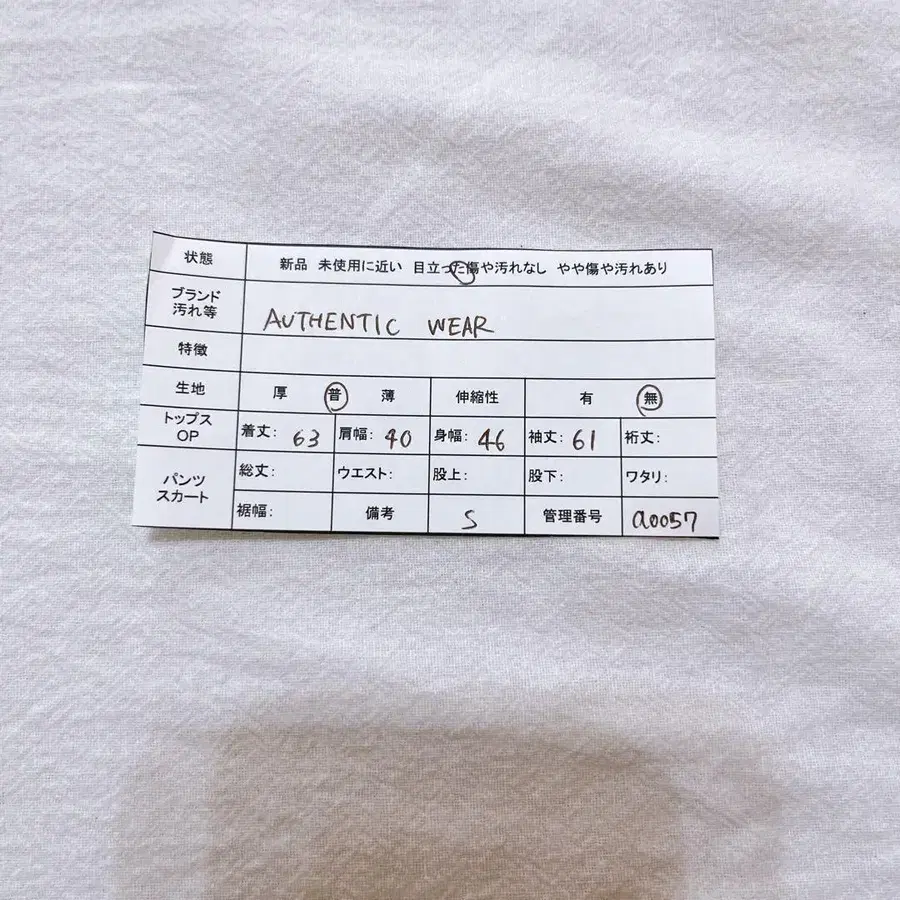 状態 新品 未使用に近い 目立った傷や汚れなし やや傷や汚れあり
ブランド
汚れ等 AUTHENTIC WEAR
特徴
生地 厚 普 薄 伸縮性 有 無
トップス
OP 着丈: 63 肩幅: 40 身幅: 46 袖丈: 61 裄丈:
パンツ
スカート 総丈: ウエスト: 股上: 股下: ワタリ:
裾幅: 備考 S 管理番号 a0057